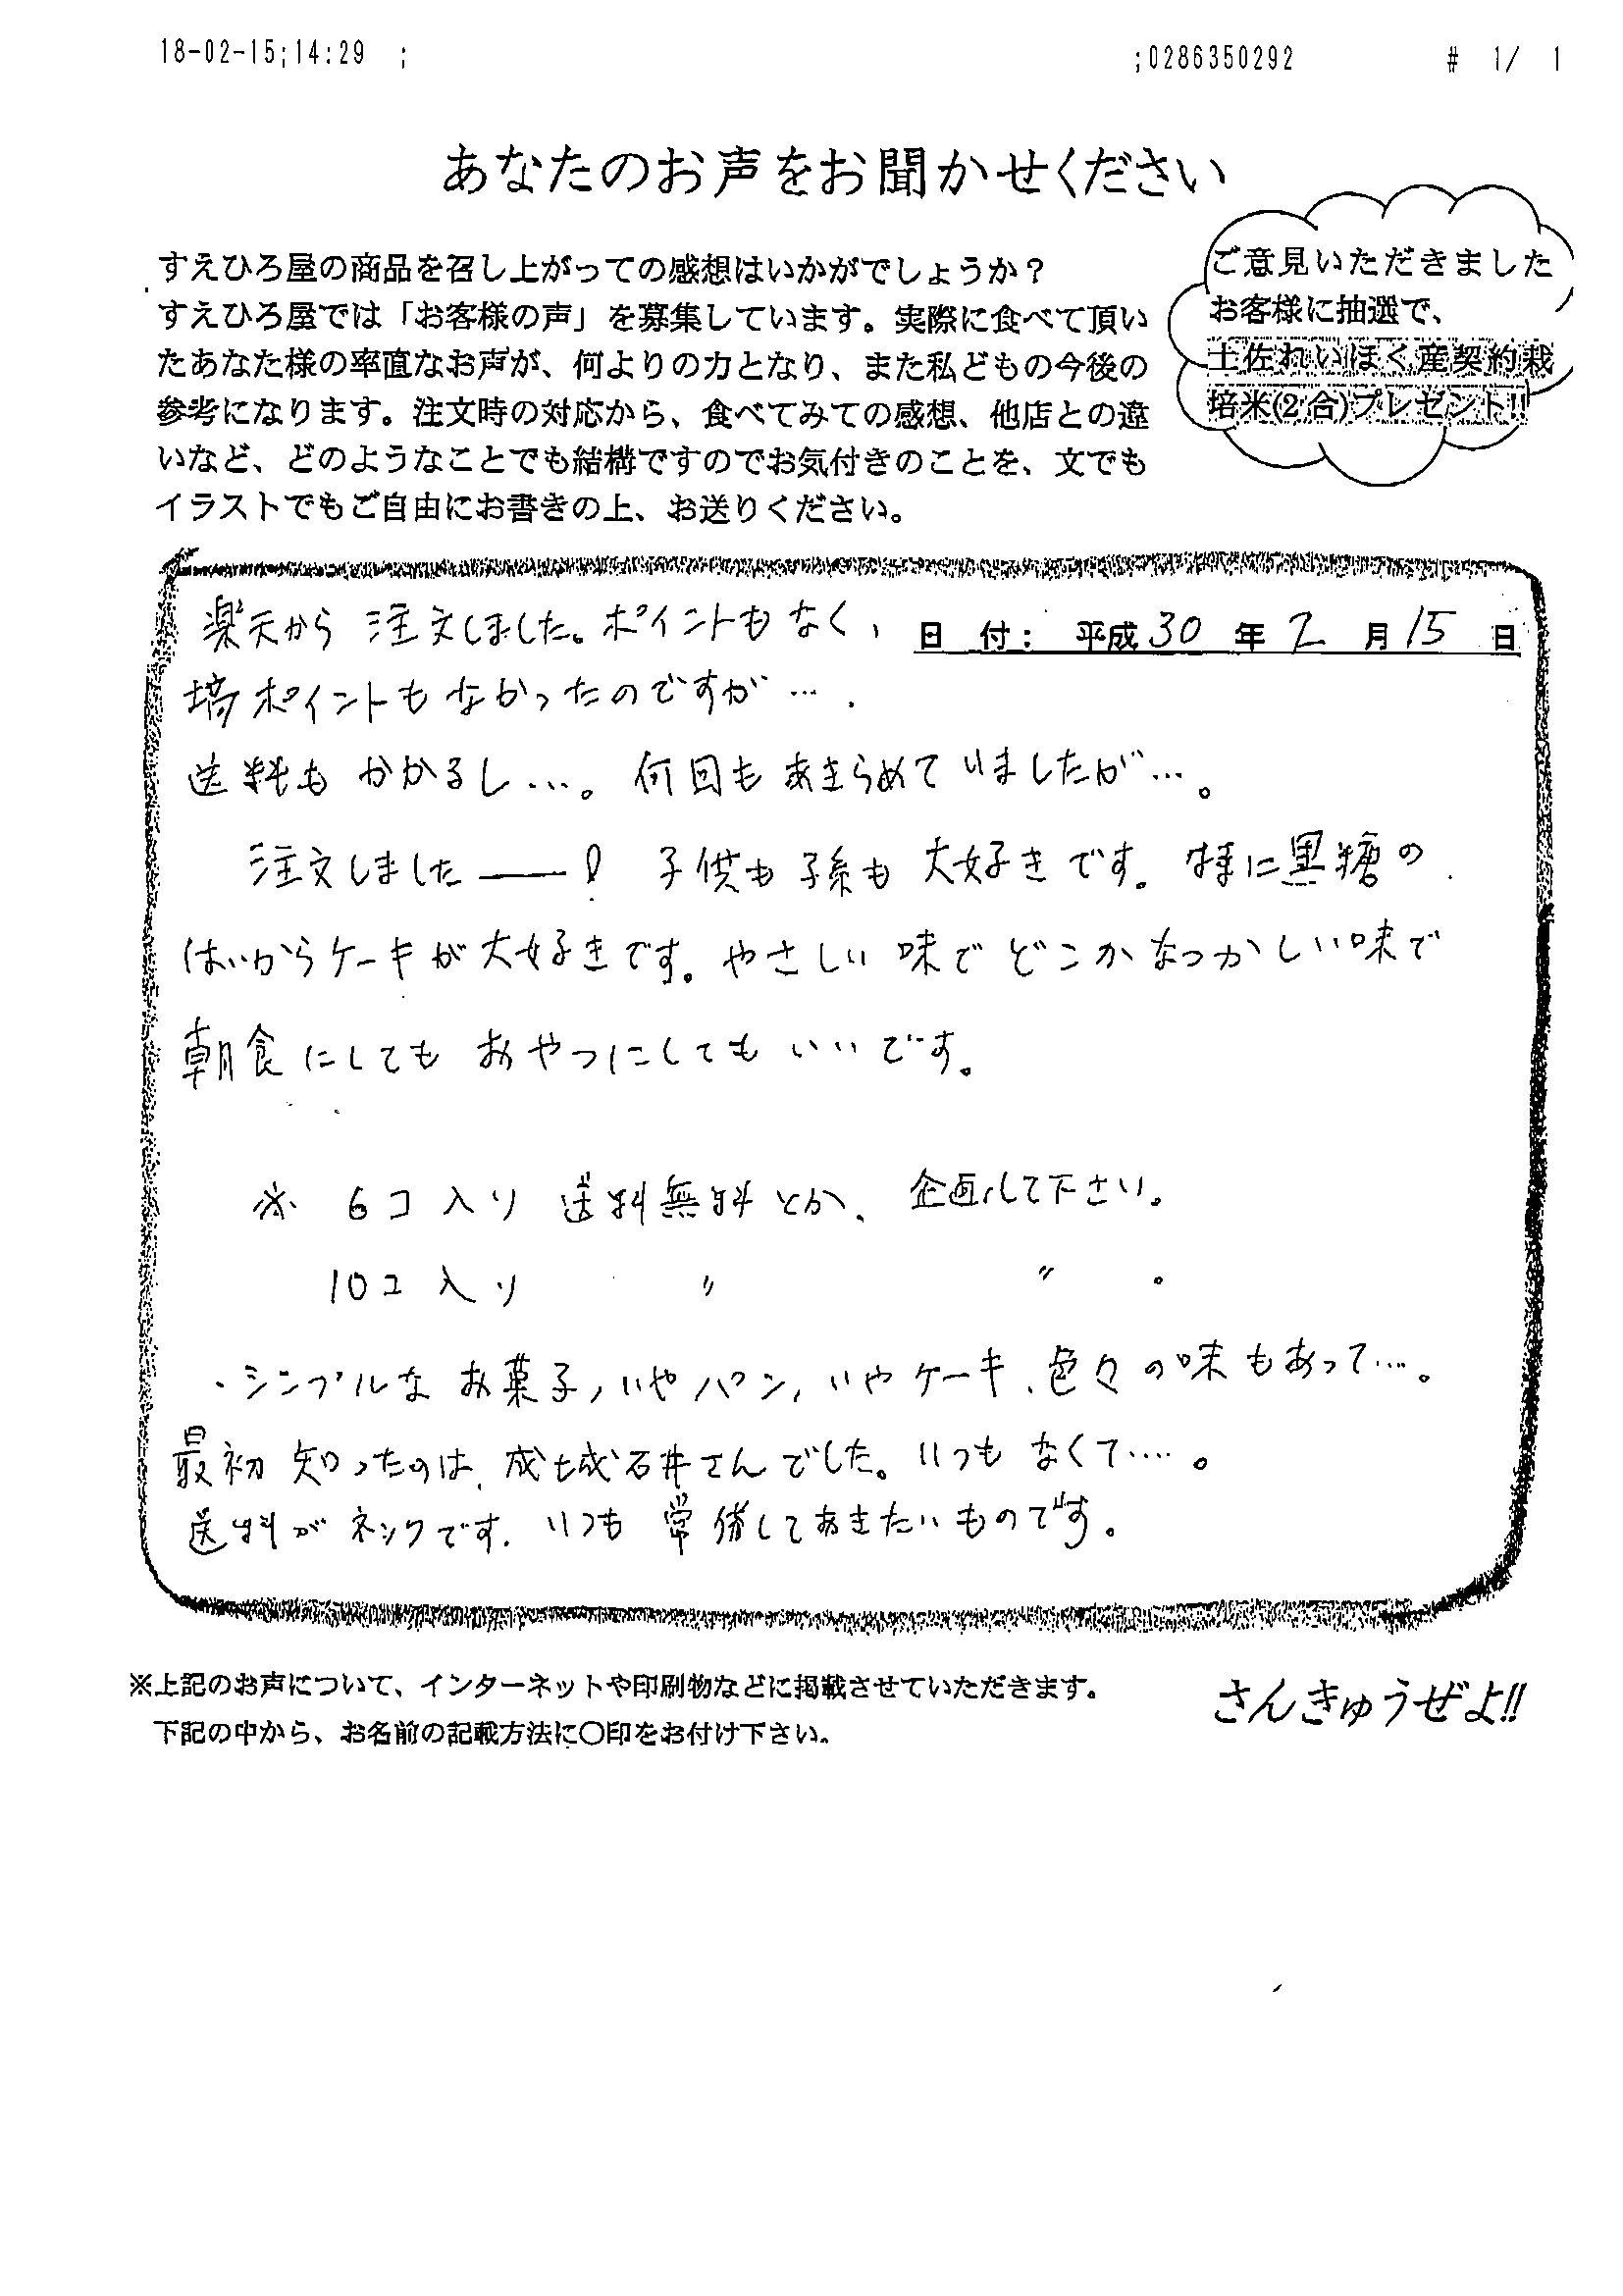 18-02-15;14:29 ; ;0286350292 # 1/ 1
あなたのお声をお聞かせください
すえひろ屋の商品を召し上がっての感想はいかがでしょうか？
すえひろ屋では「お客様の声」を募集しています。実際に食べて頂い
たあなた様の率直なお声が、何よりの力となり、また私どもの今後の
参考になります。注文時の対応から、食べてみての感想、他店との違
いなど、どのようなことでも結構ですのでお気付きのことを、文でも
イラストでもご自由にお書きの上、お送りください。
ご意見いただきました
お客様に抽選で、
土佐れいほく産契約栽
培米(2合)プレゼント!!
日 付： 平成30 年 2 月 15 日
楽天から 注文しました。ポイントもなく、
ポイントもなかったのですが…．
送料もかかるし…。何回もあきらめていましたが…。
注文しました――！ 子供も孫も大好きです。特に黒糖の
はいからケーキが大好きです。やさしい味でどこかなつかしい味で
朝食にしてもおやつにしてもいいです。
※ 6コ入り 送料無料とか、企画して下さい。
10コ入り 〃 〃 。
・シンプルなお菓子、いやパン、いやケーキ、色々の味もあって…。
最初知ったのは、成城石井さんでした。いつもなくて‥‥。
送料がネックです。いつも常備しておきたいものです。
※上記のお声について、インターネットや印刷物などに掲載させていただきます。
下記の中から、お名前の記載方法に〇印をお付け下さい。
さんきゅうぜよ!!